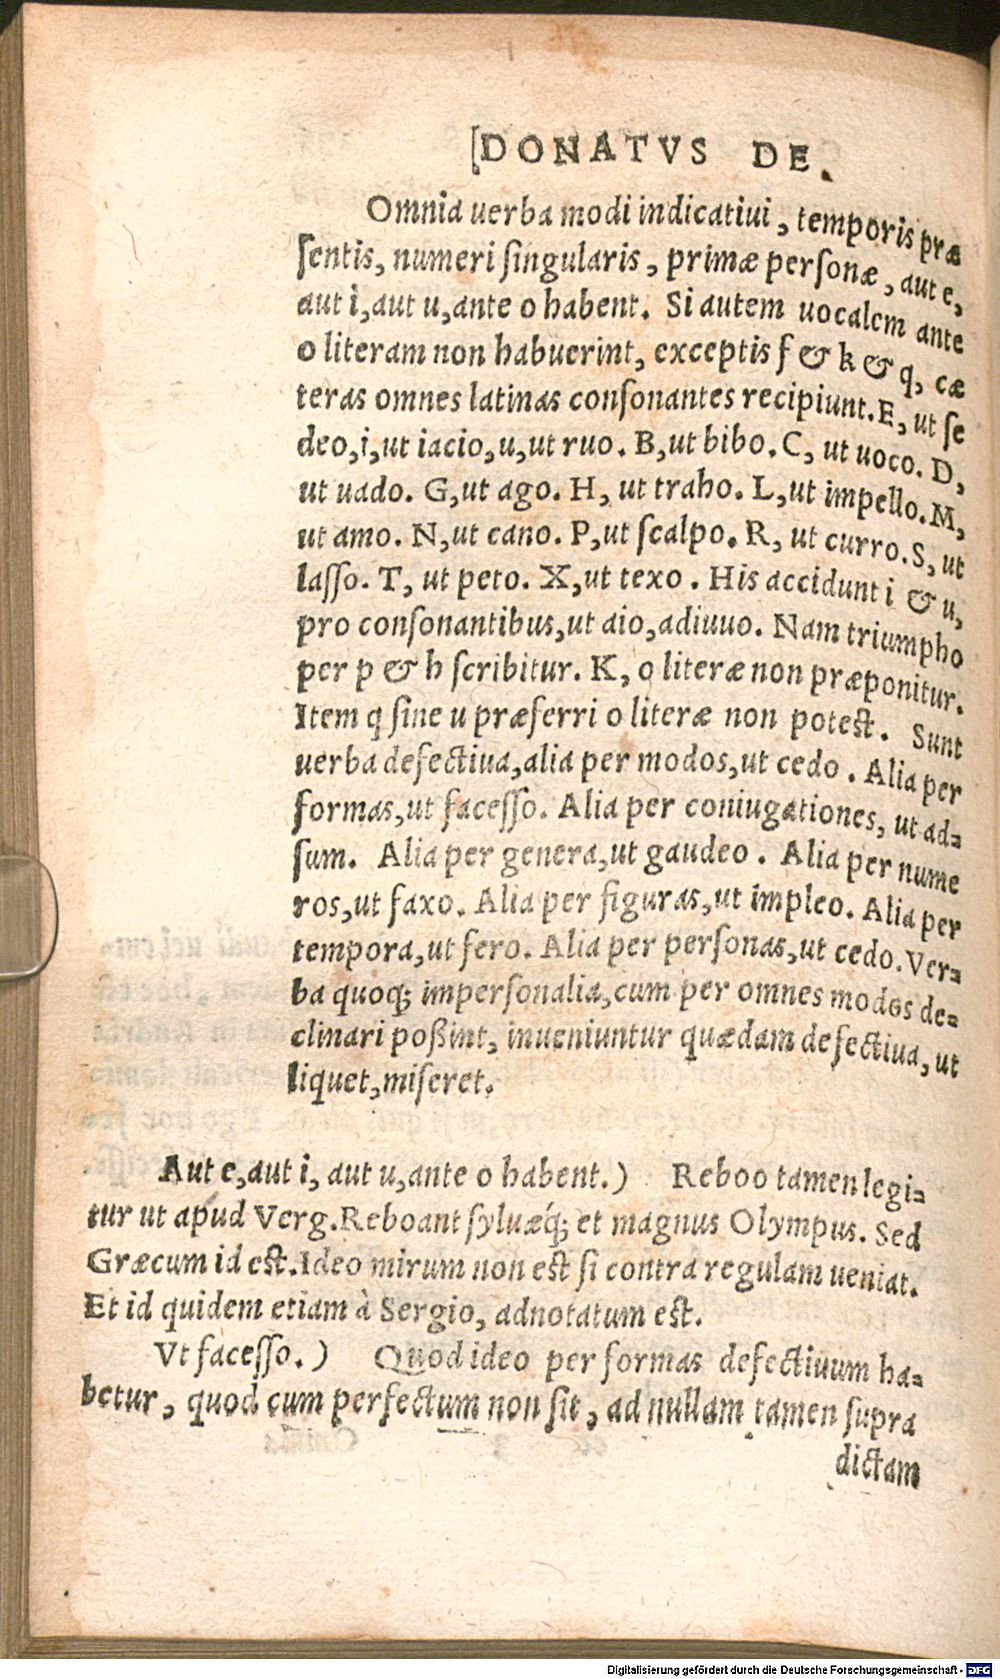 [DONATVS DE.
Omnia uerba modi indicatiui, temporis præ
ſentis, numeri ſingularis, primæ perſonæ, aut e,
aut i, aut u, ante o habent. Si autem uocalem ante
o literam non habuerint, exceptis f & k & q, cæ
teras omnes latinas conſonantes recipiunt. E, ut ſe
deo, i, ut iacio, u, ut ruo. B, ut bibo. C, ut uoco. D,
ut uado. G, ut ago. H, ut traho. L, ut impello. M,
ut amo. N, ut cano. P, ut ſcalpo. R, ut curro. S, ut
laſſo. T, ut peto. X, ut texo. His accidunt i & u,
pro conſonantibus, ut aio, adiuuo. Nam triumpho
per p & h ſcribitur. K, o literæ non præponitur.
Item q ſine u præferri o literæ non poteſt. Sunt
uerba defectiua, alia per modos, ut cedo. Alia per
formas, ut faceſſo. Alia per coniugationes, ut ad-
ſum. Alia per genera, ut gaudeo. Alia per nume
ros, ut faxo. Alia per figuras, ut impleo. Alia per
tempora, ut fero. Alia per perſonas, ut cedo. Ver-
ba quoq; imperſonalia, cum per omnes modos de-
clinari poßint, inueniuntur quædam defectiua, ut
liquet, miſeret.
Aut e, aut i, aut u, ante o habent.) Reboo tamen legi-
tur ut apud Verg. Reboant ſyluæq́; et magnus Olympus. Sed
Græcum id eſt. Ideo mirum non eſt ſi contra regulam ueniat.
Et id quidem etiam à Sergio, adnotatum eſt.
Vt faceſſo.) Quod ideo per formas defectiuum ha-
betur, quod cum perfectum non ſit, ad nullam tamen ſupra
dictam
Digitalisierung gefördert durch die Deutsche Forschungsgemeinschaft - DFG